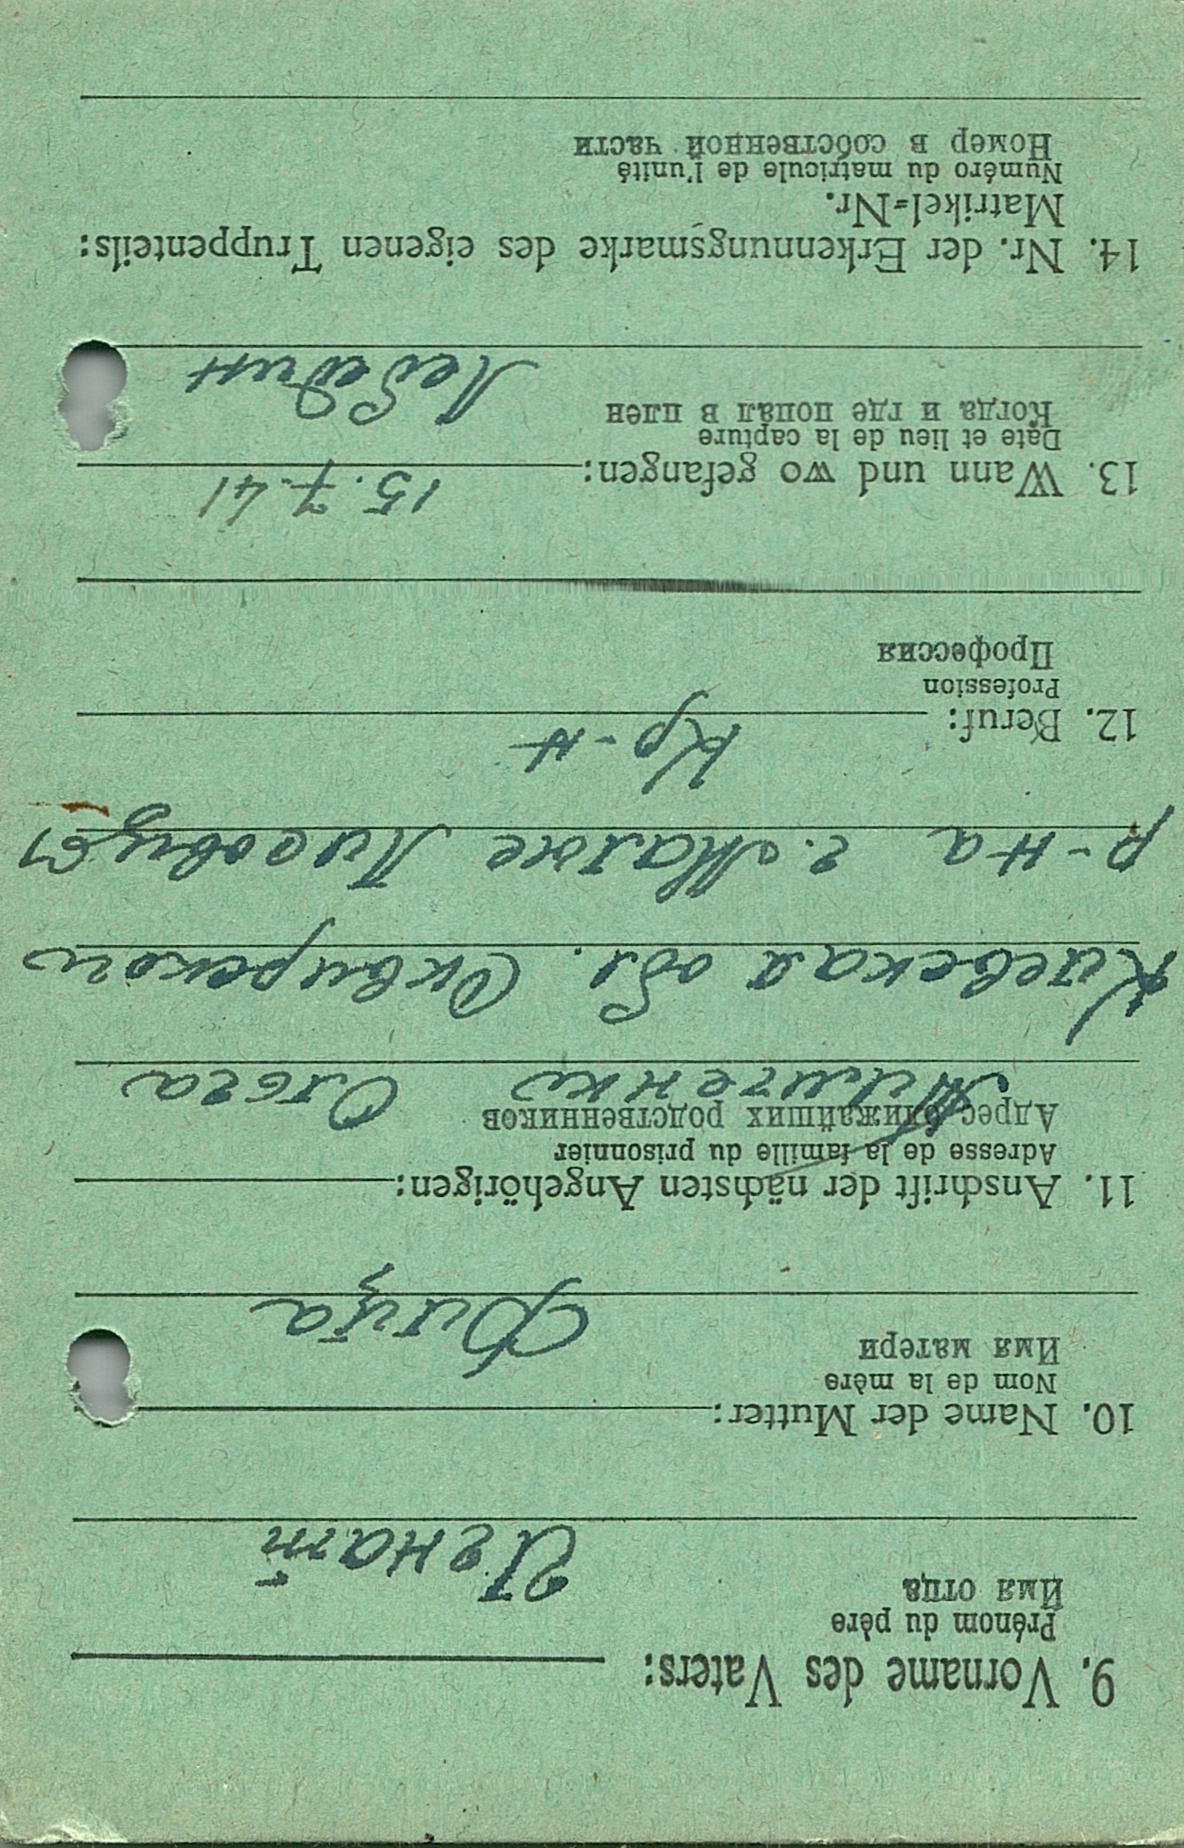 9. Vorname des Vaters:
Prénom du père
Имя отца
Игнат
10. Name der Mutter:
Nom de la mère
Имя матери
11. Anschrift der nächsten Angehörigen:
Adresse de la famille du prisonnier
Адрес ближайших родственников
Ольга
Киевская обл. Сквирского
р-на с. Малые Лисовцы
12. Beruf:
Кр-н
Profession
Профессия
13. Wann und wo gefangen: 15.7.41
Date et lieu de la capture
Когда и где попал в плен
Лебедин
14. Nr. der Erkennungsmarke des eigenen Truppenteils:
Matrikel-Nr.
Numéro du matricule de l'unité
Номер в собственной части